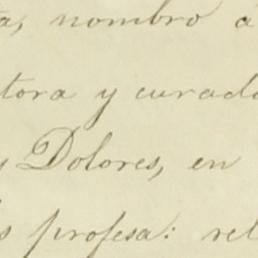 a, nombro á
tora y curado
y Dolores, en
s profesa: rel